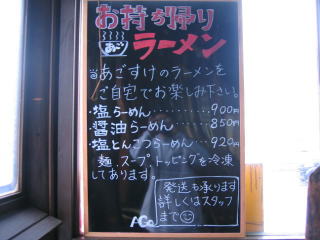 お持ち帰り
あご
ラーメン
あごすけのラーメンを
ご自宅でお楽しみ下さい。
・塩らーめん………900円
・醤油らーめん………850円
・塩とんこつらーめん…920円
麺、スープ、トッピングを冷凍
してあります。
発送も承ります
詳しくはスタッフ
まで